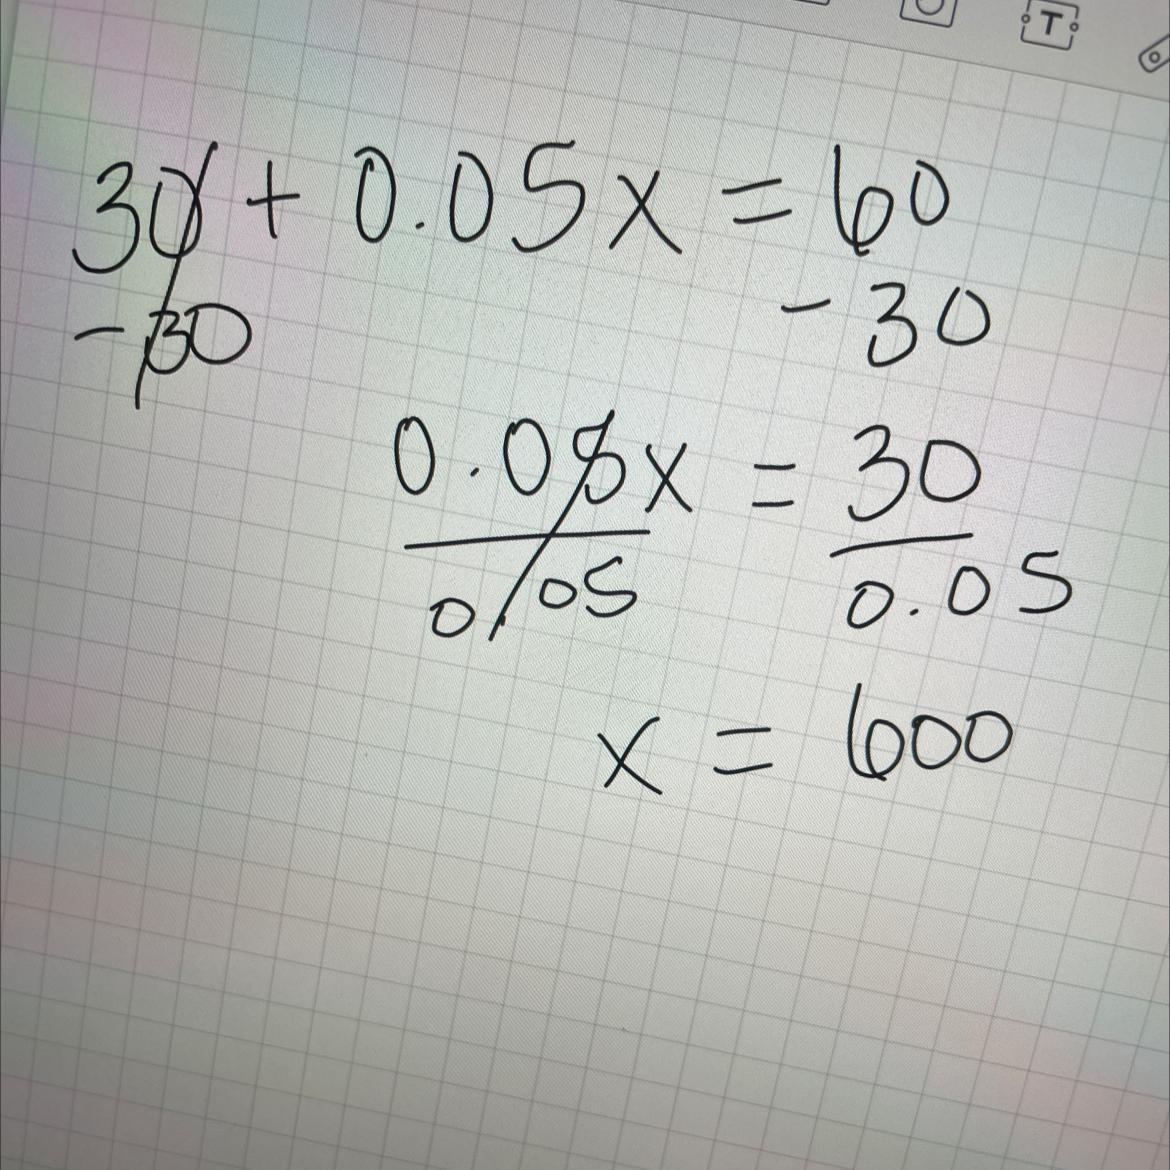 T
30 + 0.05x = 60
- 30 - 30
0.05x = 30
0.05 0.05
x = 600